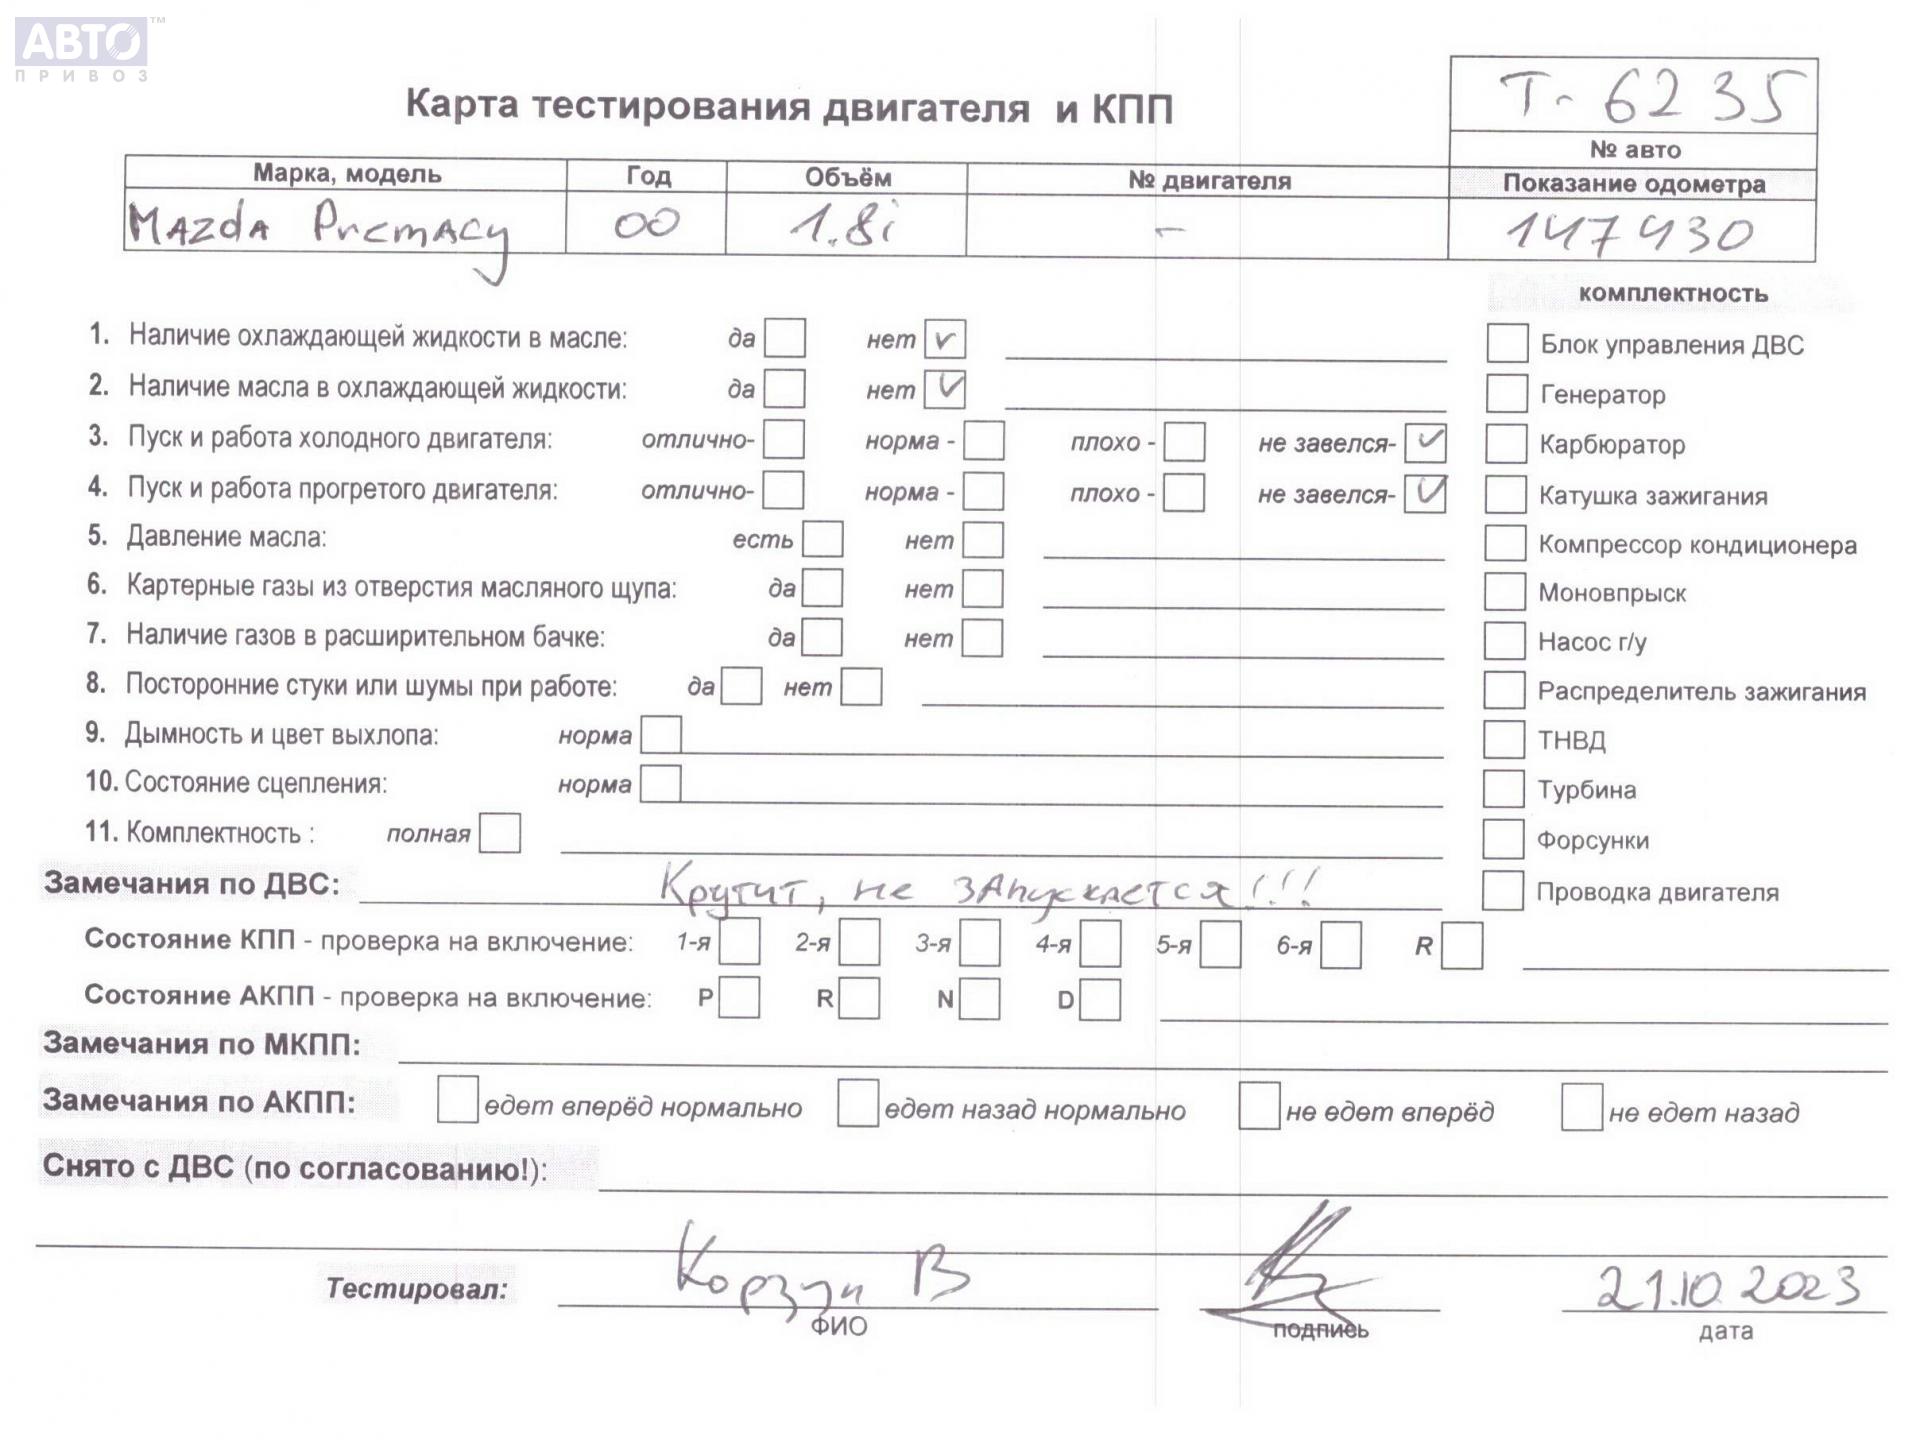 АВТО™
ПРИВОЗ
Карта тестирования двигателя и КПП
Т- 6235
№ авто
Марка, модель Год Объём № двигателя Показание одометра
Mazda Premacy 00 1.8i - 147430
комплектность
1. Наличие охлаждающей жидкости в масле: да нет Блок управления ДВС
2. Наличие масла в охлаждающей жидкости: да нет Генератор
3. Пуск и работа холодного двигателя: отлично- норма - плохо - не завелся- Карбюратор
4. Пуск и работа прогретого двигателя: отлично- норма - плохо - не завелся- Катушка зажигания
5. Давление масла: есть нет Компрессор кондиционера
6. Картерные газы из отверстия масляного щупа: да нет Моновпрыск
7. Наличие газов в расширительном бачке: да нет Насос г/у
8. Посторонние стуки или шумы при работе: да нет Распределитель зажигания
9. Дымность и цвет выхлопа: норма ТНВД
10. Состояние сцепления: норма Турбина
11. Комплектность : полная Форсунки
Замечания по ДВС: Крутит, не запускается!!! Проводка двигателя
Состояние КПП - проверка на включение: 1-я 2-я 3-я 4-я 5-я 6-я R
Состояние АКПП - проверка на включение: P R N D
Замечания по МКПП:
Замечания по АКПП: едет вперёд нормально едет назад нормально не едет вперёд не едет назад
Снято с ДВС (по согласованию!):
Тестировал: Корзун В 21.10.2023
ФИО подпись дата